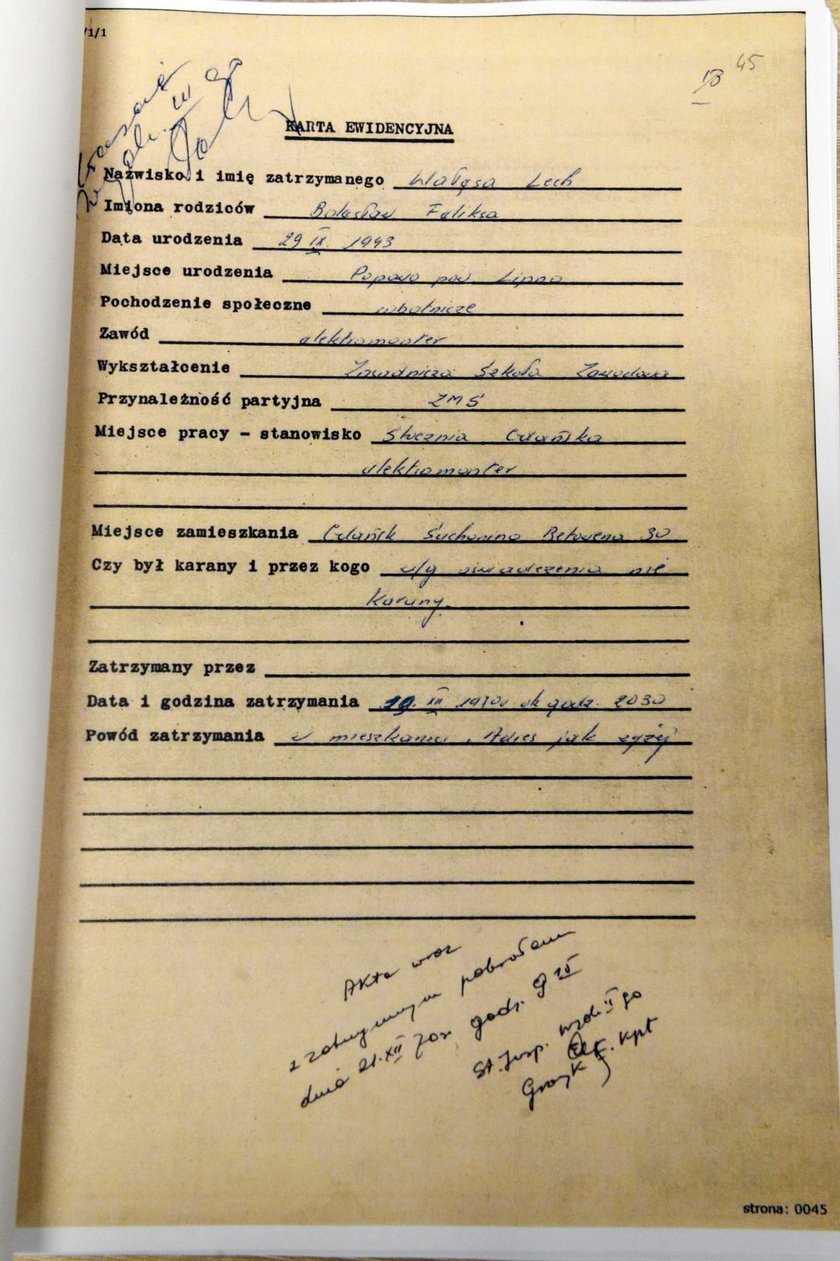 1/1
13 45
KARTA EWIDENCYJNA
Nazwisko i imię zatrzymanego Wałęsa Lech
Imiona rodziców Bolesław Feliksa
Data urodzenia 29 IX 1943
Miejsce urodzenia Popowo pow. Lipno
Pochodzenie społeczne robotnicze
Zawód elektromonter
Wykształcenie Zasadnicza Szkoła Zawodowa
Przynależność partyjna ZMS
Miejsce pracy - stanowisko Stocznia Gdańska
elektromonter
Miejsce zamieszkania Gdańsk Suchanino Betovena 30
Czy był karany i przez kogo w/g oświadczenia nie
karany.
Zatrzymany przez
Data i godzina zatrzymania 19. XII 1970r ok godz. 2030
Powód zatrzymania w mieszkaniu. Adres jak wyżej
Akta wraz
z zatrzymanym pobrałem
dnia 21.XII 70r. godz. 9
St. Insp. Wydz. II go
kpt
strona: 0045